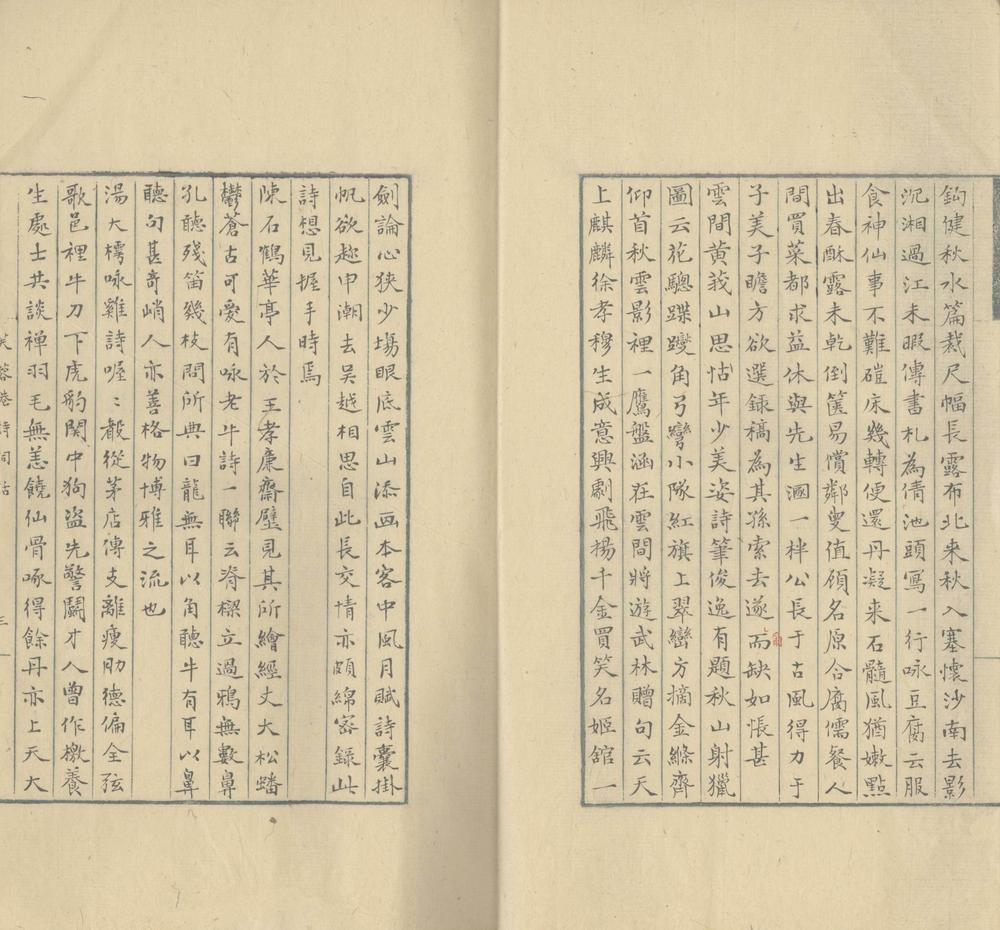 鈎健秋水篇裁尺幅長露布北来秋入塞懷沙南去影
沉湘過江未暇傳書札為倩池頭寫一行咏豆腐云服
食神仙事不難磑床幾轉便還丹凝来石髓風猶嫩點
出春酥露未乾倒篋易償鄰叟值碩名原合腐儒餐人
間買菜都求益休與先生溷一柈公長于古風得力于
子美子瞻方欲選録稿為其孫索去遂而缺如悵甚
雲間黄莪山思怙年少美姿詩筆俊逸有題秋山射獵
圖云花驄蹀躞角弓彎小隊紅旗上翠巒方摘金縧齊
仰首秋雲影裡一鷹盤涵在雲間將遊武林贈句云天
上麒麟徐孝穆生成意興劇飛揚千金買笑名姬舘一
劍論心狹少塲眼底雲山添画本客中風月賦詩囊掛
帆欲趂申潮去吴越相思自此長交情亦頗綿宻録此
詩想見握手時焉
陳石鶴華亭人於王孝廉齋壁見其所繪經丈大松蟠
鬱蒼古可愛有咏老牛詩一聯云脊樑立過鴉無數鼻
孔聽殘笛幾枝問所典曰龍無耳以角聽牛有耳以鼻
聽句甚奇峭人亦善格物博雅之流也
湯大樗咏雞詩喔〻聲從茅店傳支離瘦肋德偏全弦
歌邑裡牛刀下虎豹関中狗盗先警鬭才人曽作檄養
生處士共談禅羽毛無恙饒仙骨啄得餘丹亦上天大
蓉巷詩詞話
三